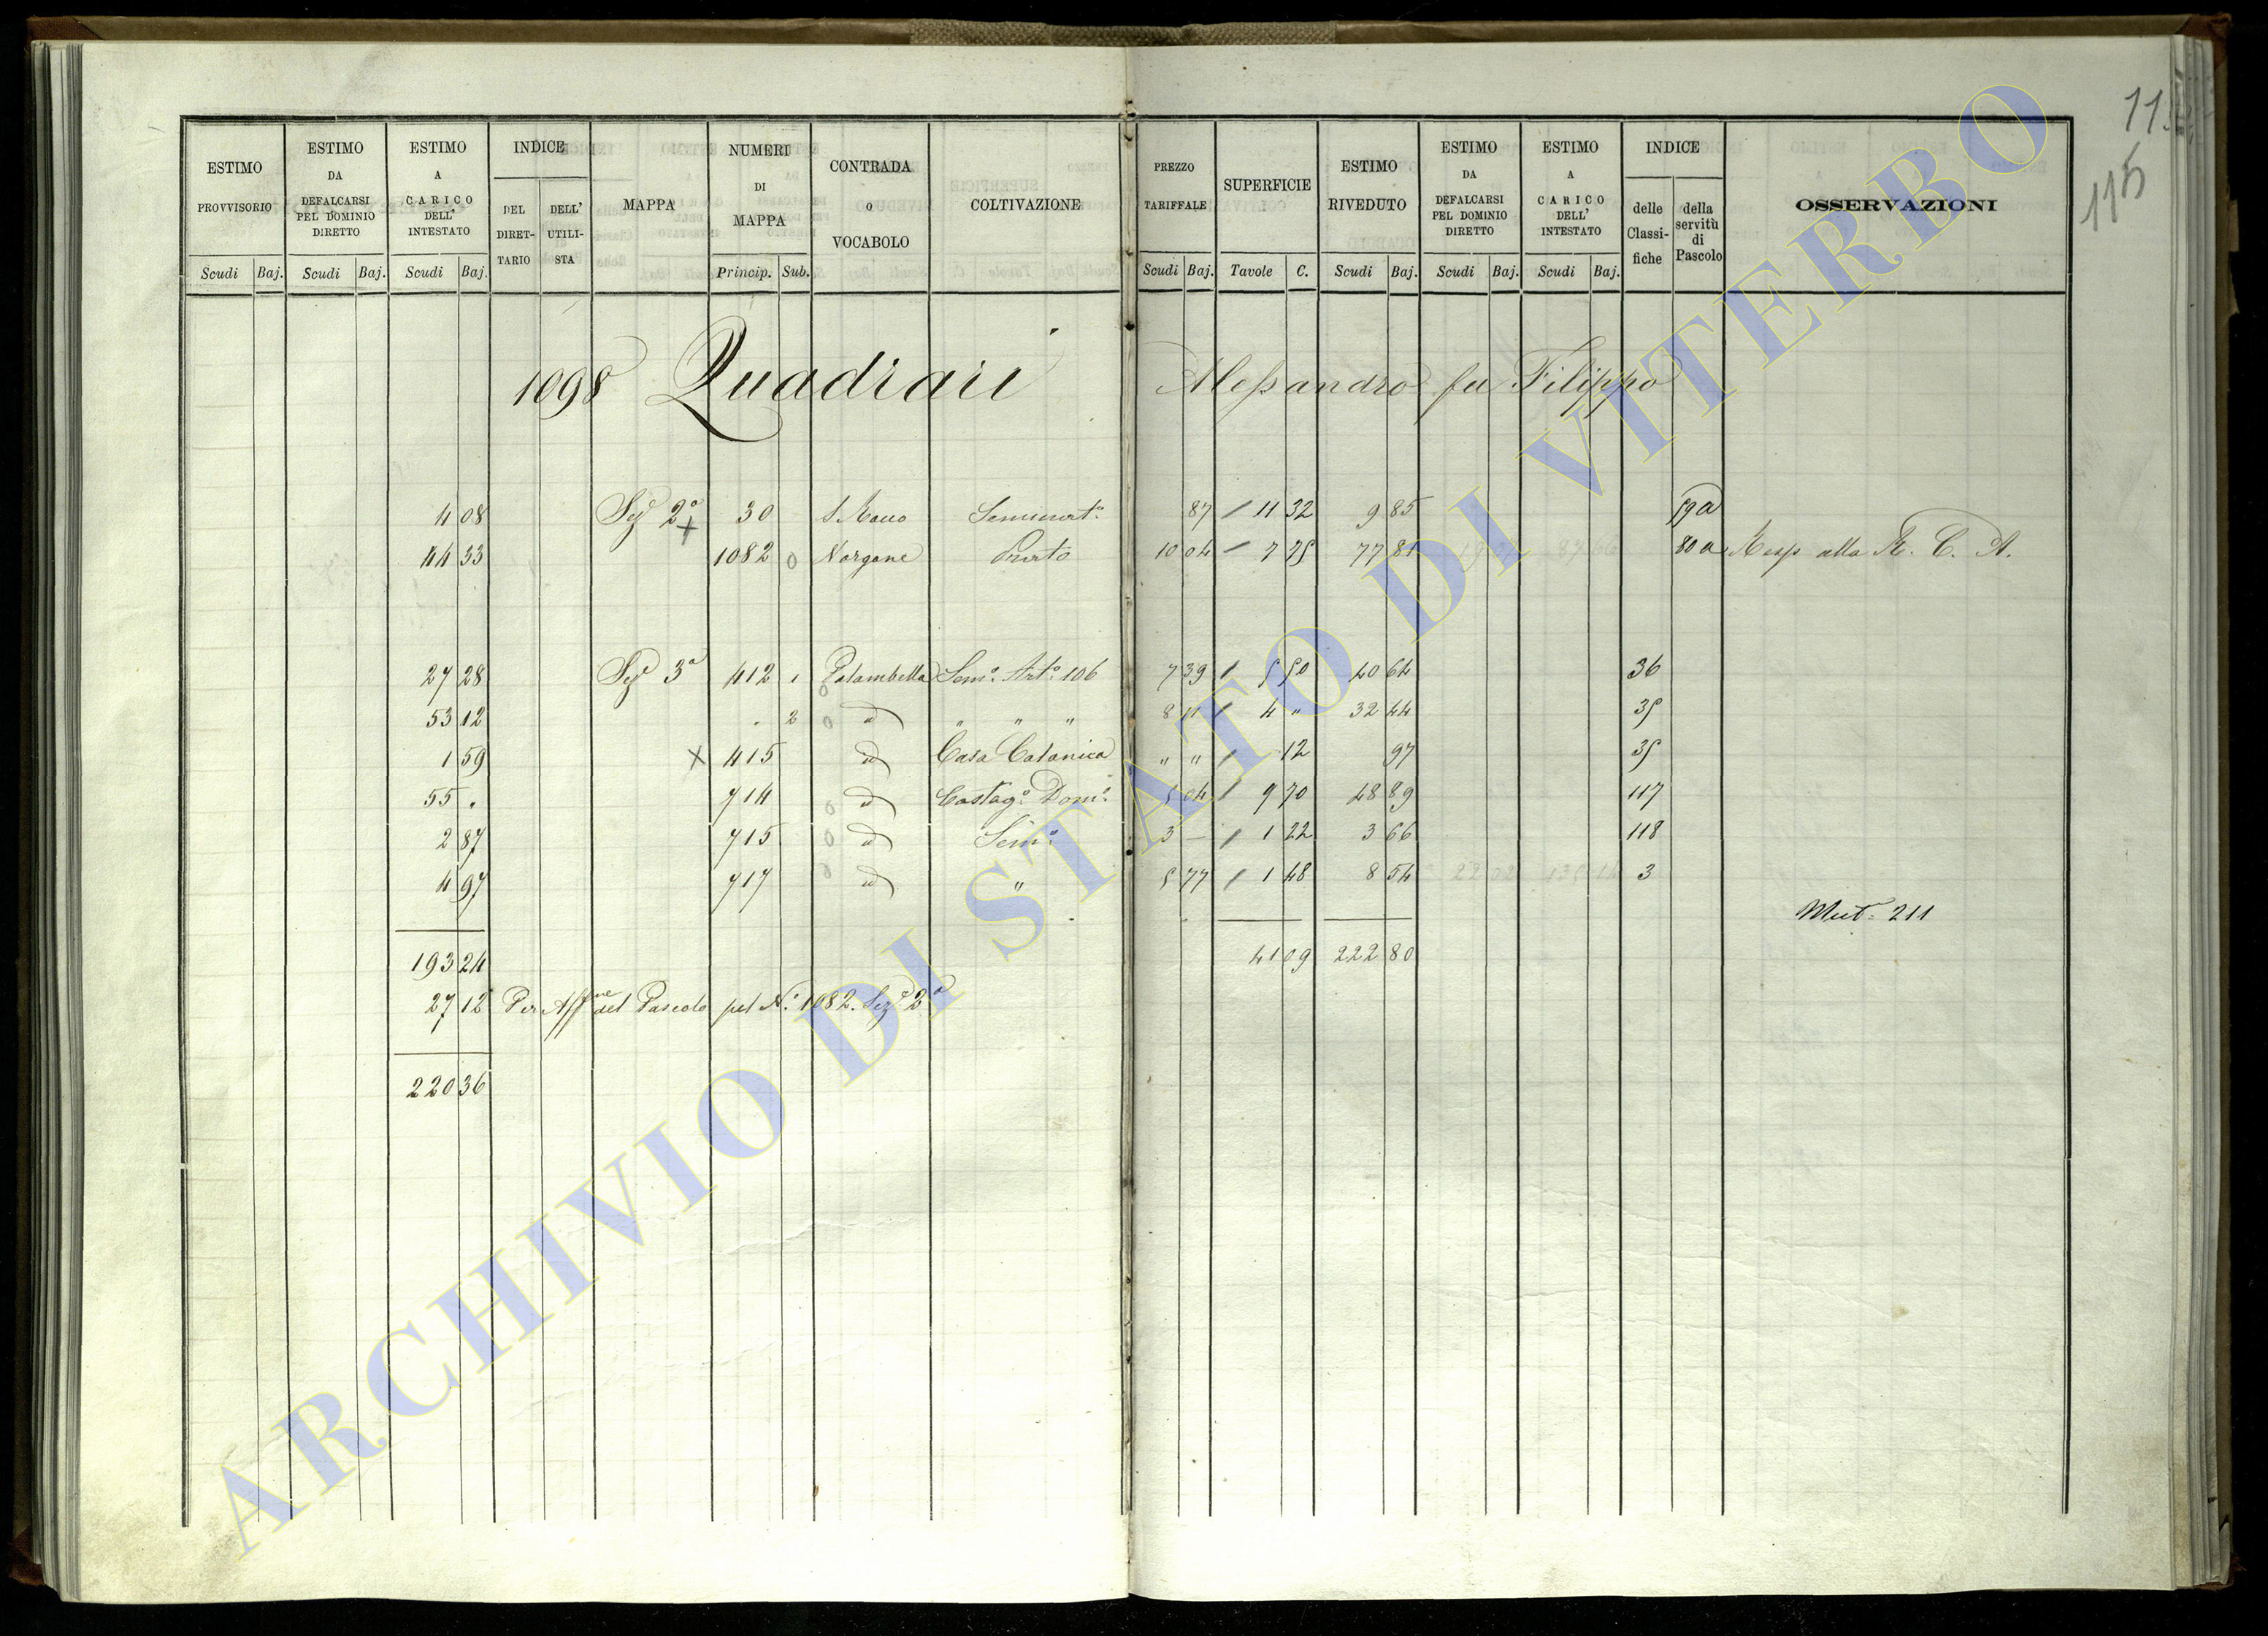 115
ESTIMO PROVVISORIO Scudi Baj.
ESTIMO DA DEFALCARSI PEL DOMINIO DIRETTO Scudi Baj.
ESTIMO A CARICO DELL' INTESTATO Scudi Baj.
INDICE DEL DIRETTARIO DELL' UTILISTA
MAPPA
NUMERI DI MAPPA Princip. Sub.
CONTRADA O VOCABOLO
COLTIVAZIONE
PREZZO TARIFFALE Scudi Baj.
SUPERFICIE Tavole C.
ESTIMO RIVEDUTO Scudi Baj.
ESTIMO DA DEFALCARSI PEL DOMINIO DIRETTO Scudi Baj.
ESTIMO A CARICO DELL' INTESTATO Scudi Baj.
INDICE delle Classifiche della servitù di Pascolo
OSSERVAZIONI
1098 Quadrari Alessandro fu Filippo
4 08 Sez.e 2a 30 S. Rocco Seminat.o 87 / 11 32 9 85 59 a
44 33 1082 0 Norgane Prato 10 04 / 7 75 77 81 80 a Resp alla R. C. A.
27 28 Sez.e 3a 412 1 Palambella Sem.o Art.o 106 7 39 / 5 50 40 64 36
53 12 . 2 0 id " " " 8 11 / 4 " 32 44 35
1 59 x 415 id Casa Colonica " " / 12 97 35
55 . 714 0 id Castag.o Dom.o 5 04 / 9 70 48 89 117
2 87 715 0 id Sem.o 3 — / 1 22 3 66 118
4 97 717 0 id " 5 77 / 1 48 8 54 3
Mut. 211
193 24 41 09 222 80
27 12 Per Aff.ne del Pascolo pel N.o 1082. Sez.e 2a
220 36
ARCHIVIO DI STATO DI VITERBO